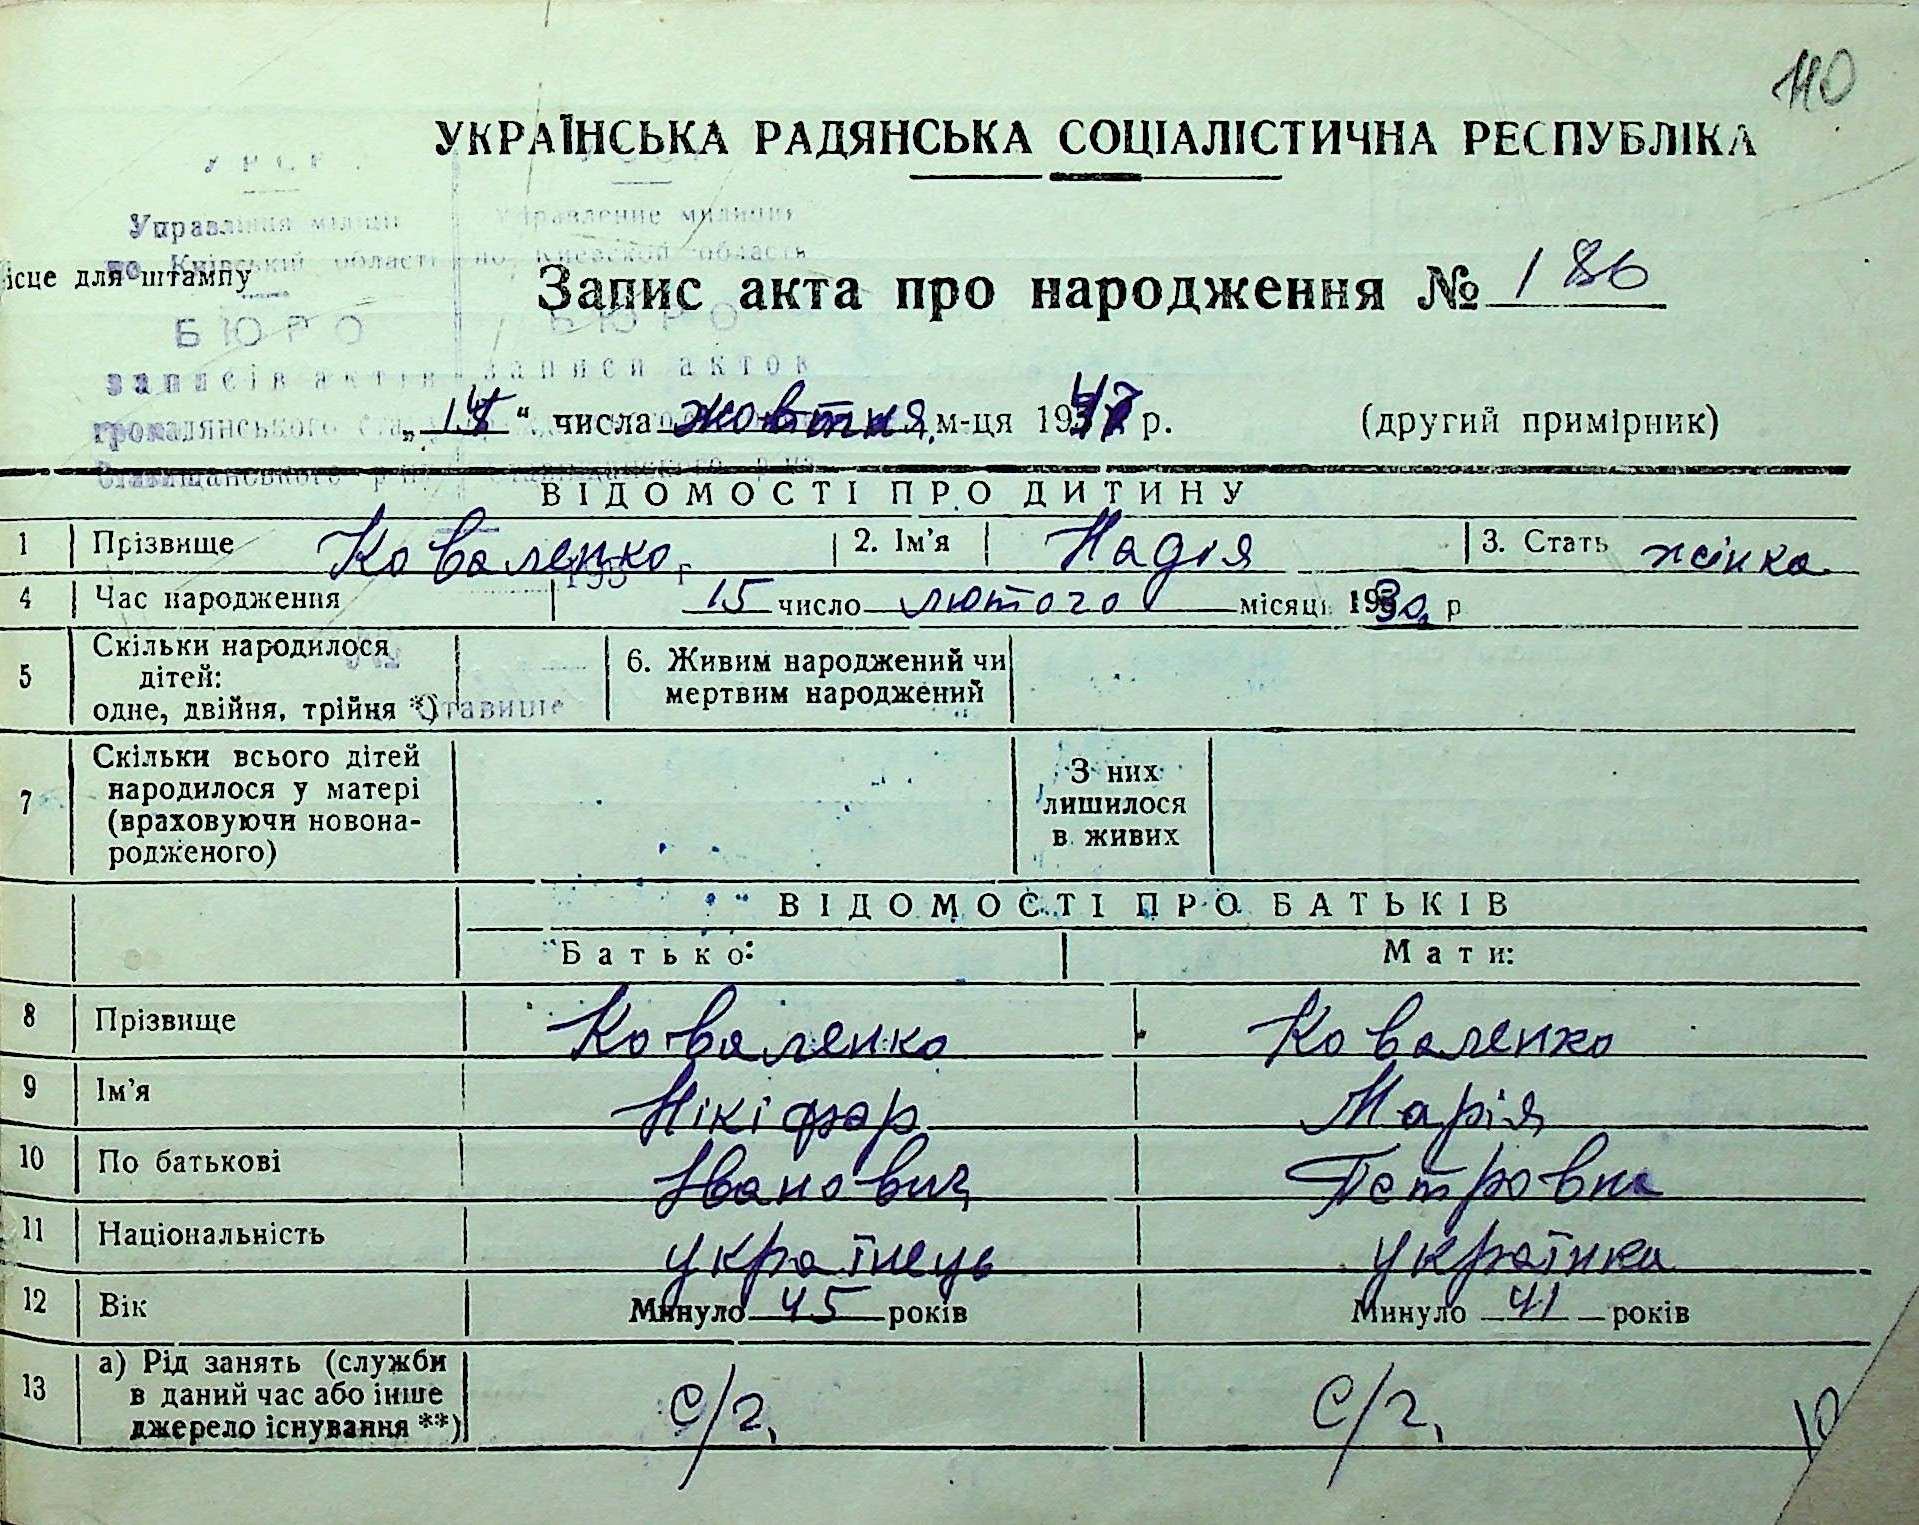 110
УКРАЇНСЬКА РАДЯНСЬКА СОЦІАЛІСТИЧНА РЕСПУБЛІКА
УРСР
Управління міліції Управление милиции
по Київській області по Киевской области
ісце для штампу
Запис акта про народження № 186
БЮРО БЮРО
записів актів записи актов
громадянського
„ “ числа жовтня м-ця 1947 р. (другий примірник)
Ставищанського р-ну Ставищанского р-на
ВІДОМОСТІ ПРО ДИТИНУ
1 Прізвище Коваленко 2. Ім’я Надія 3. Стать жінка
195 г
4 Час народження 15 число лютого місяця 1930 р
5 Скільки народилося дітей: одне, двійня, трійня *) 6. Живим народжений чи мертвим народжений
Ставище
7 Скільки всього дітей народилося у матері (враховуючи новонародженого) З них лишилося в живих
ВІДОМОСТІ ПРО БАТЬКІВ
Батько: Мати:
8 Прізвище Коваленко Коваленко
9 Ім’я Нікіфор Марія
10 По батькові Іванович Петровна
11 Національність українець українка
12 Вік Минуло 45 років Минуло 41 років
13 а) Рід занять (служби в даний час або інше джерело існування **) с/г, с/г,
10